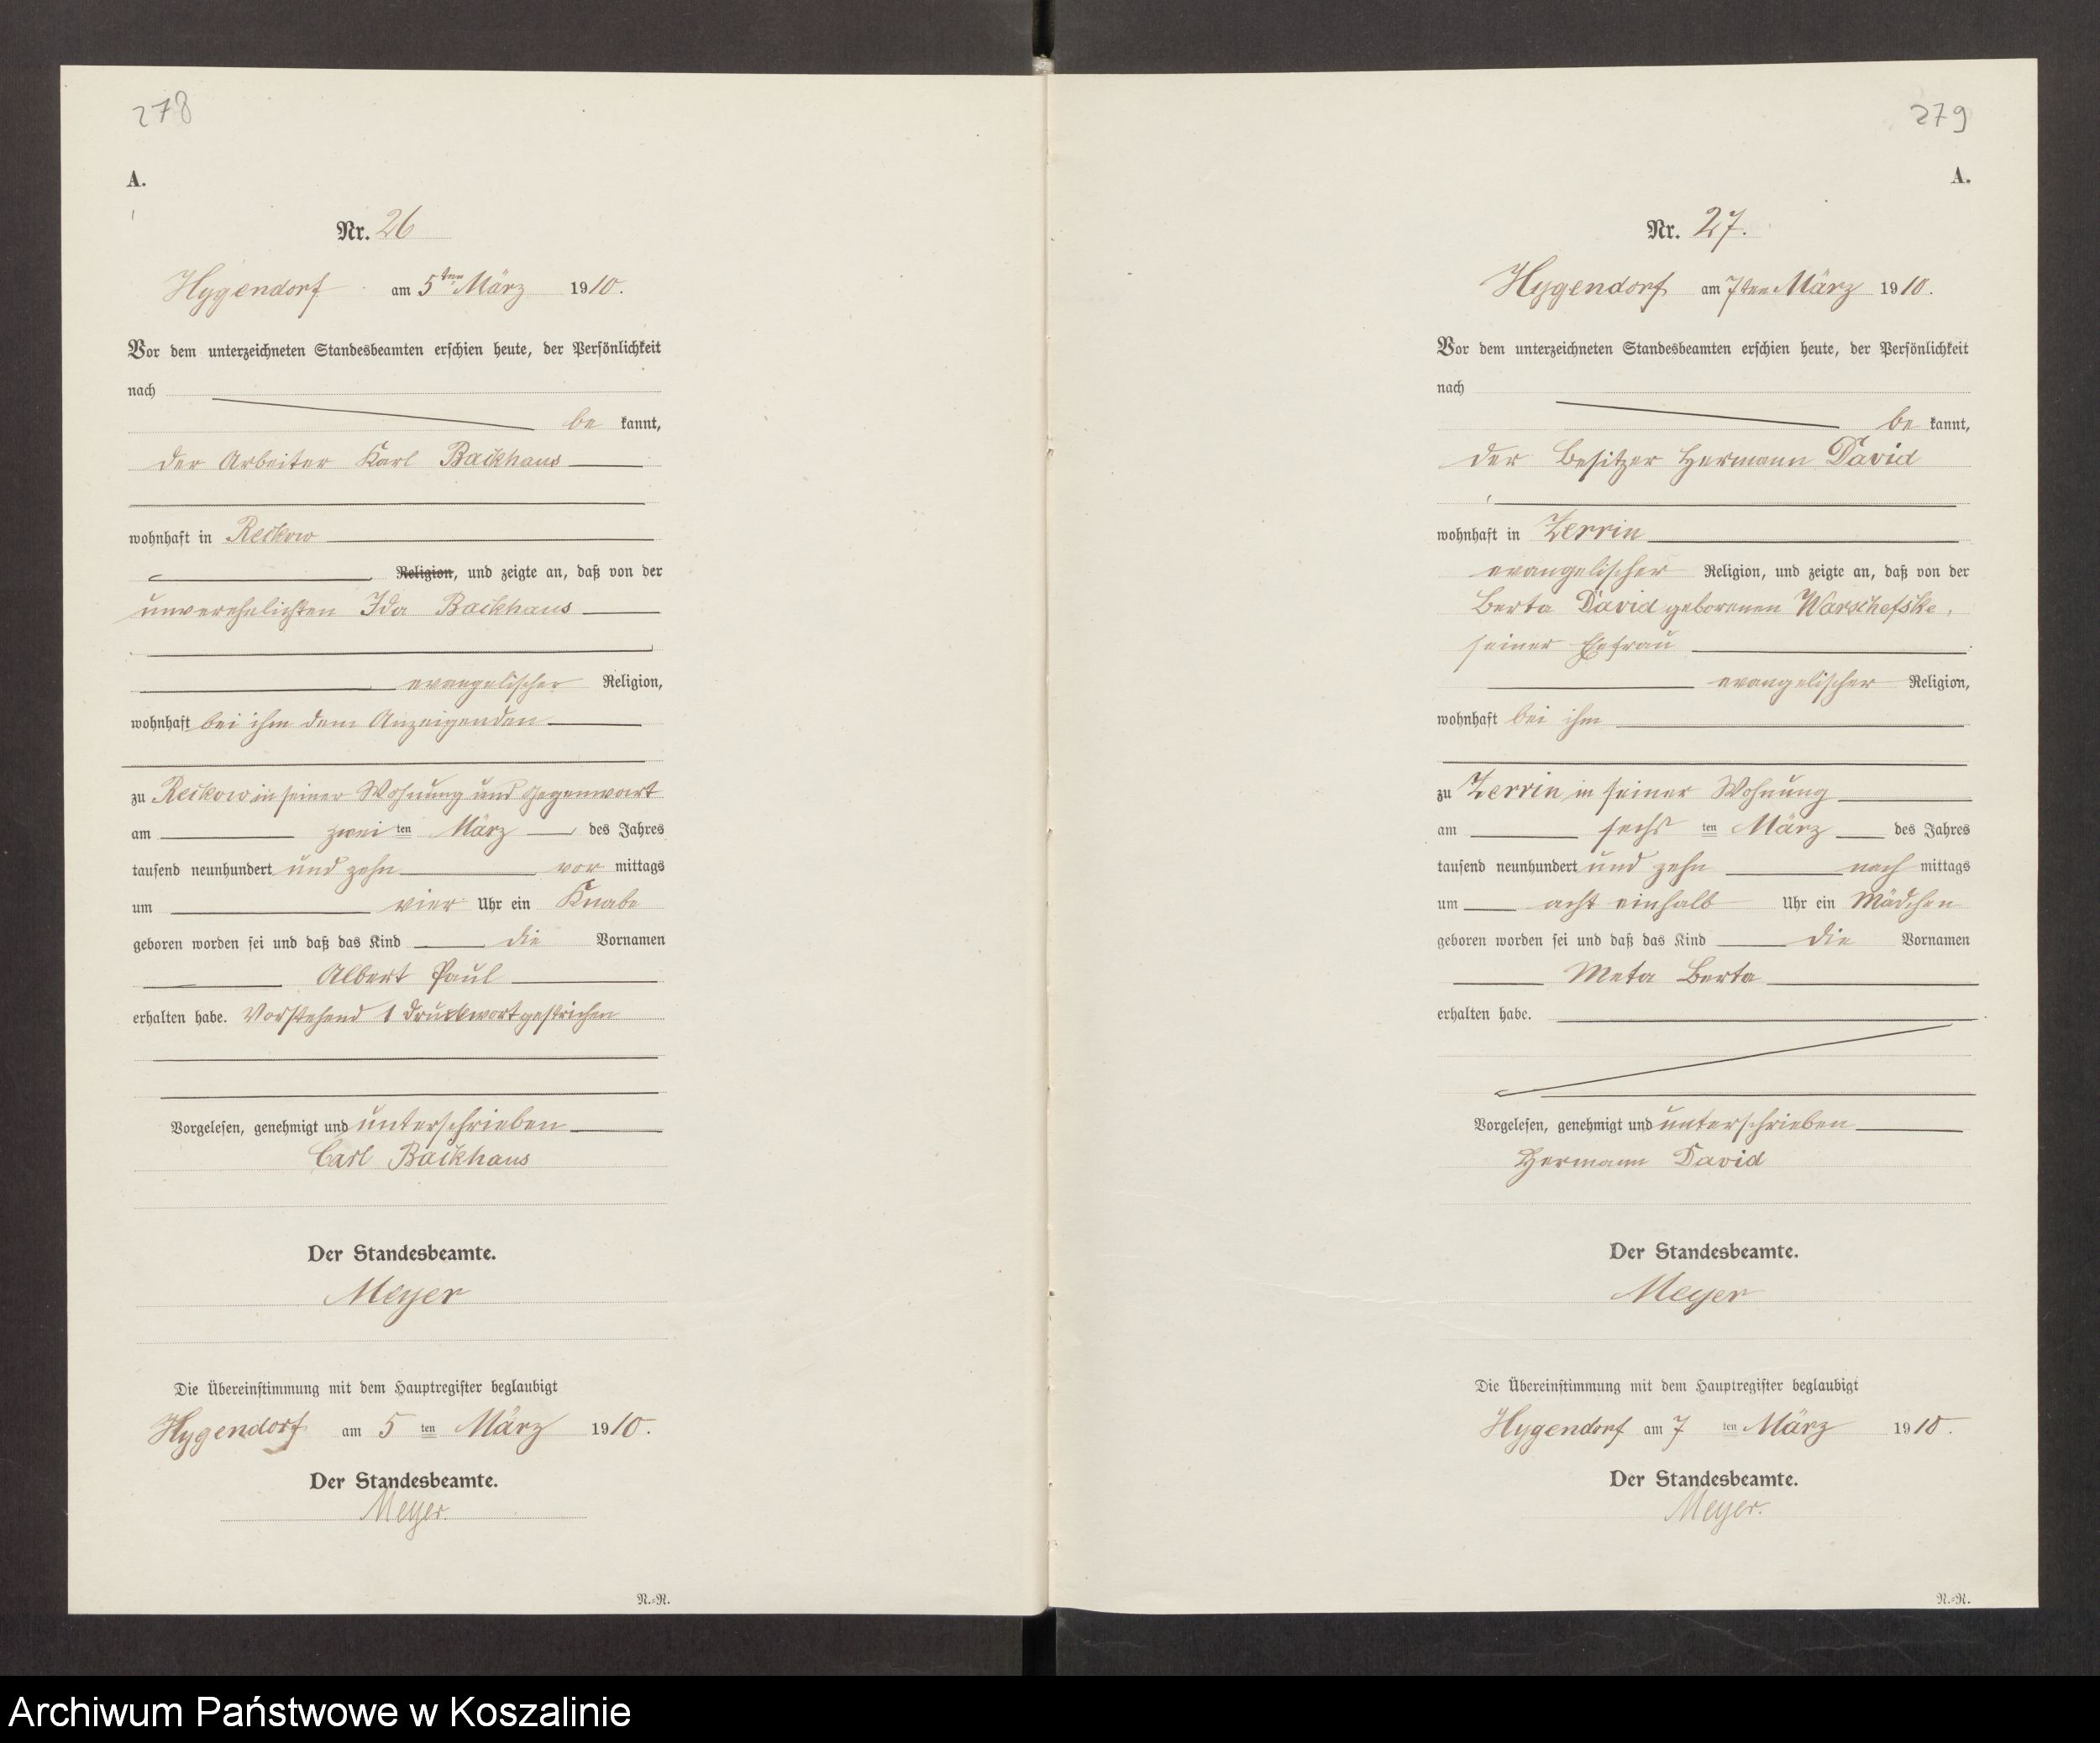 278
A.
Nr. 26
Hygendorf am 5ten März 1910.
Vor dem unterzeichneten Standesbeamten erschien heute, der Persönlichkeit
nach
be kannt,
der Arbeiter Karl Backhaus
wohnhaft in Reckow
Religion, und zeigte an, daß von der
unverehelichten Ida Backhaus
evangelischer Religion,
wohnhaft bei ihm dem Anzeigenden
zu Reckow in seiner Wohnung und Gegenwart
am zwei ten März des Jahres
tausend neunhundert und zehn vor mittags
um vier Uhr ein Knabe
geboren worden sei und daß das Kind die Vornamen
Albert Paul
erhalten habe. Vorstehend 1 Druckwort gestrichen
Vorgelesen, genehmigt und unterschrieben
Carl Backhaus
Der Standesbeamte.
Meyer
Die Übereinstimmung mit dem Hauptregister beglaubigt
Hygendorf am 5 ten März 1910.
Der Standesbeamte.
Meyer.
N.=N.
279
A.
Nr. 27.
Hygendorf am 7ten März 1910.
Vor dem unterzeichneten Standesbeamten erschien heute, der Persönlichkeit
nach
be kannt,
der Besitzer Hermann David
wohnhaft in Zerrin
evangelischer Religion, und zeigte an, daß von der
Berta David geborenen Warschefske,
seiner Ehefrau
evangelischer Religion,
wohnhaft bei ihm
zu Zerrin in seiner Wohnung
am sechs ten März des Jahres
tausend neunhundert und zehn nach mittags
um acht einhalb Uhr ein Mädchen
geboren worden sei und daß das Kind die Vornamen
Meta Berta
erhalten habe.
Vorgelesen, genehmigt und unterschrieben
Hermann David
Der Standesbeamte.
Meyer
Die Übereinstimmung mit dem Hauptregister beglaubigt
Hygendorf am 7 ten März 1910.
Der Standesbeamte.
Meyer.
N.=N.
Archiwum Państwowe w Koszalinie